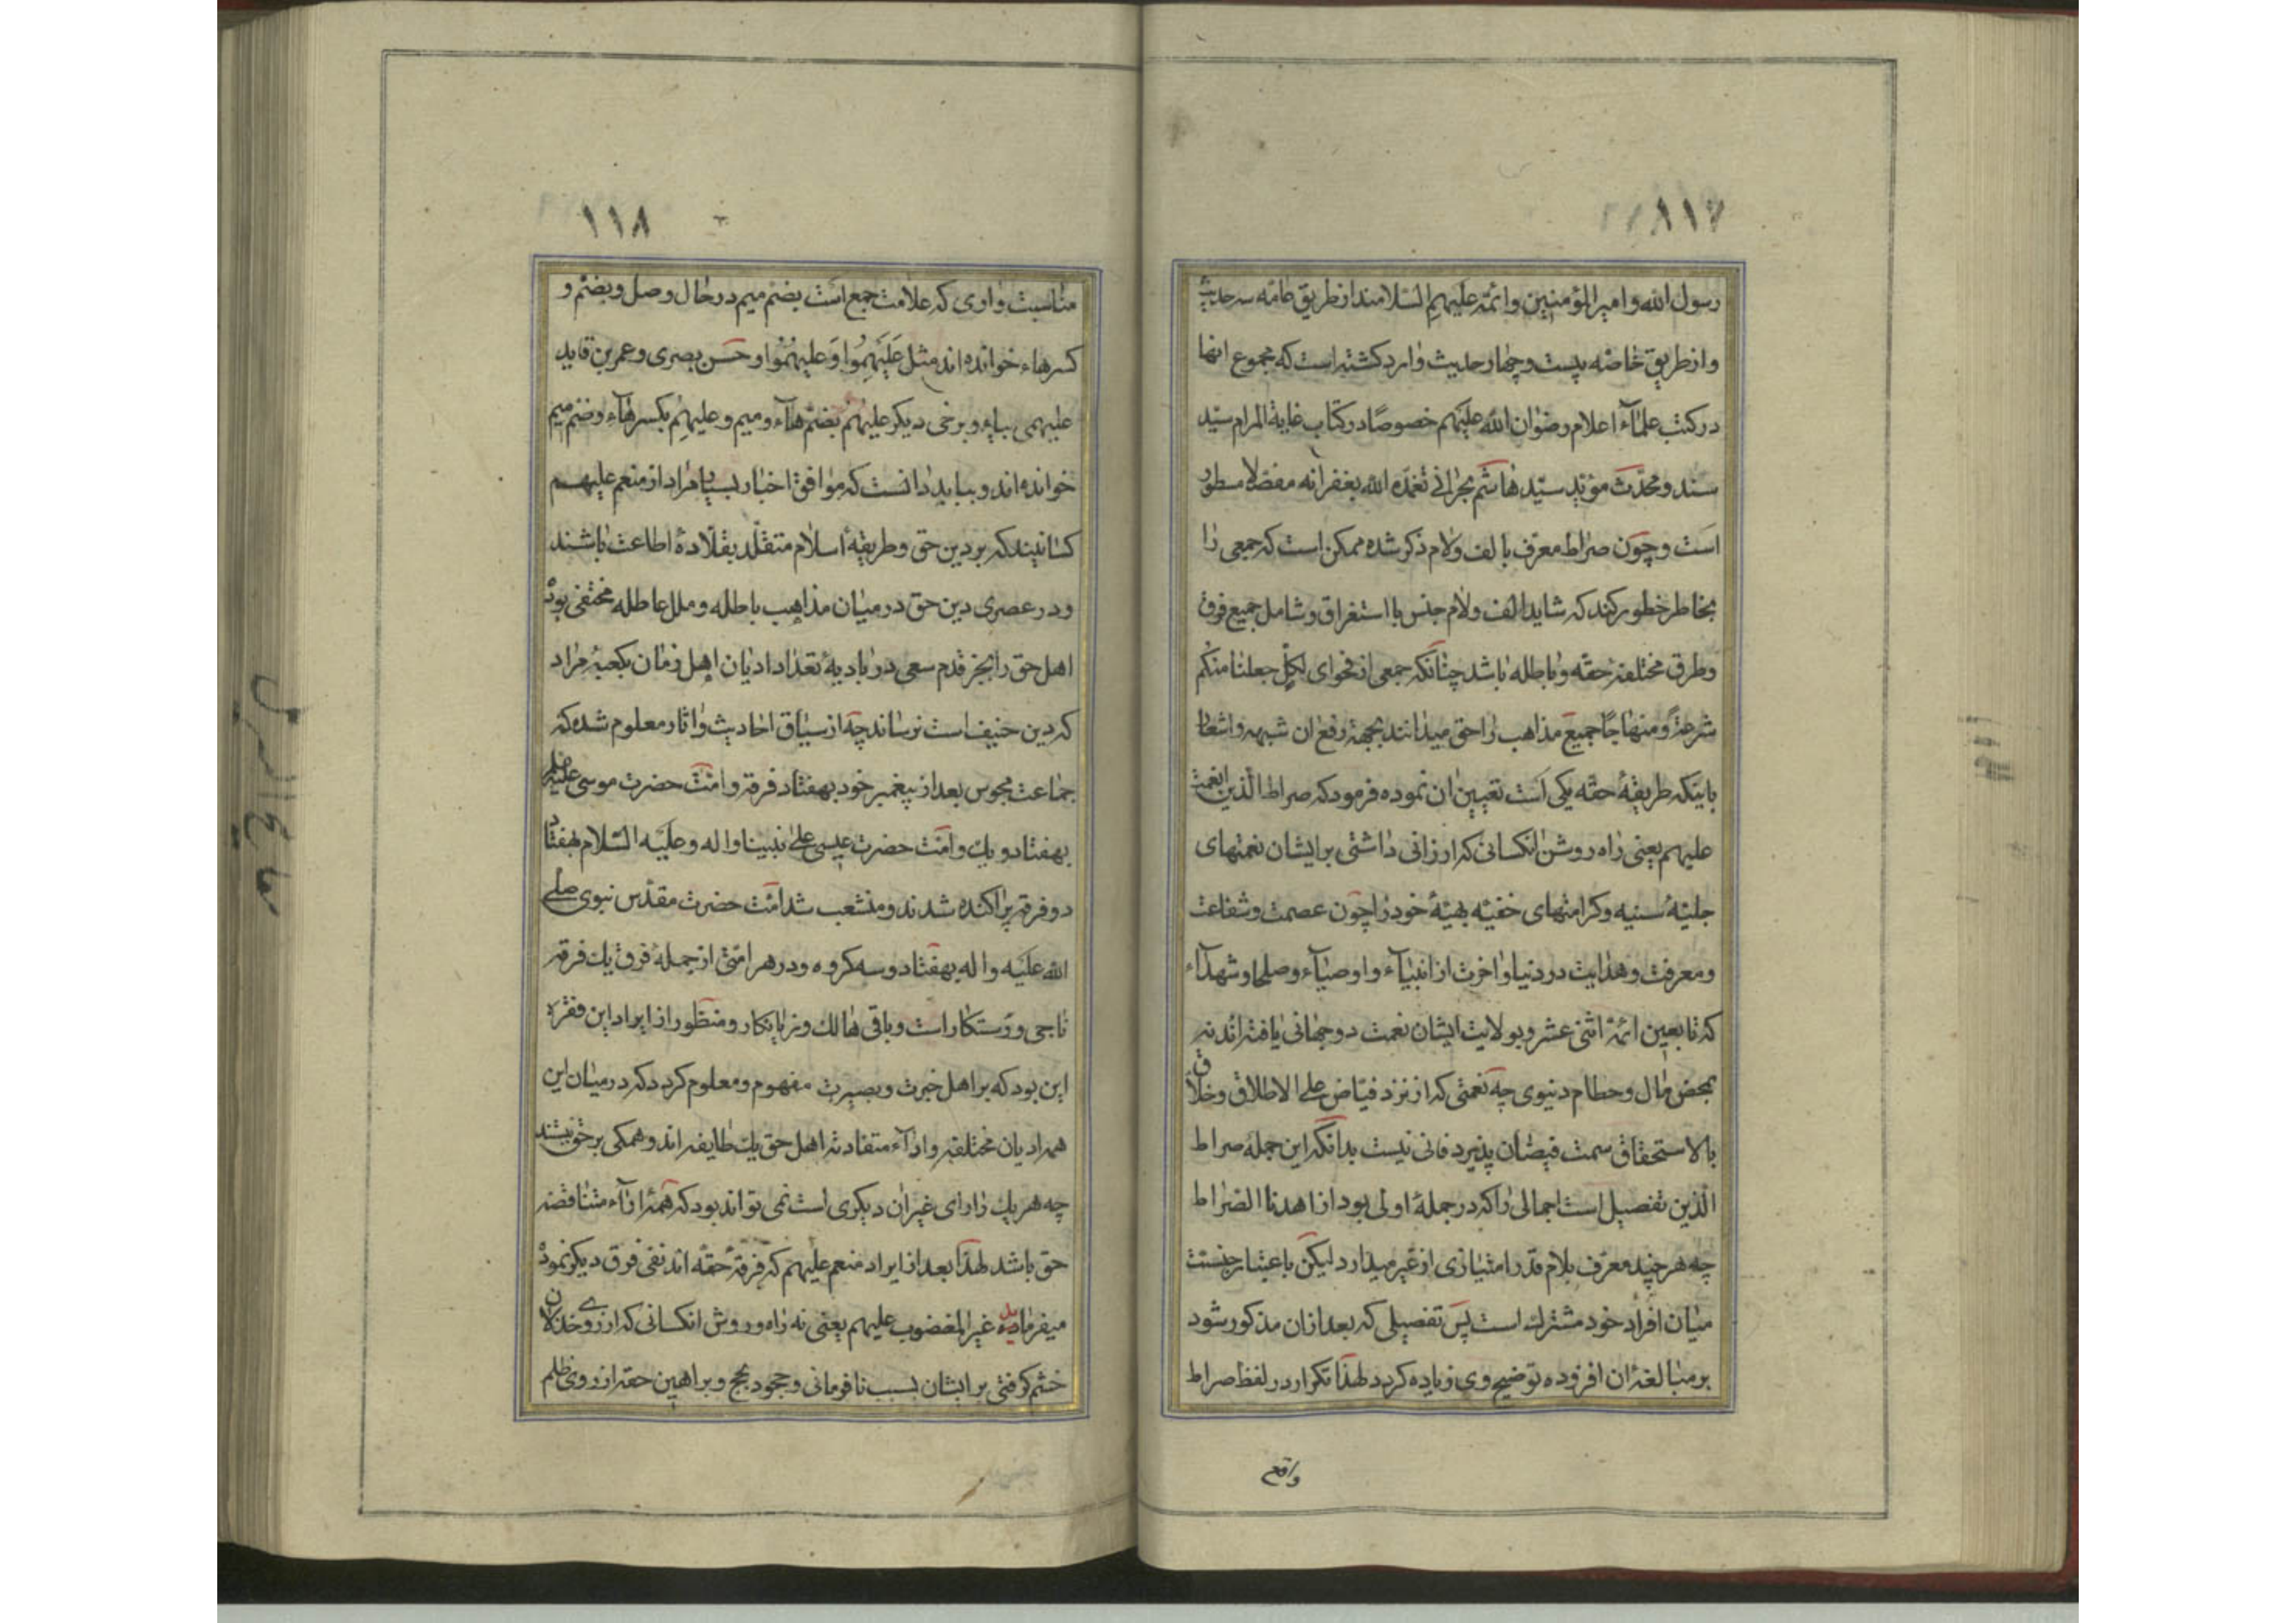 ١١٧
رسول الله و امیرالمؤمنین و ائمه علیهم السلامند از طریق عامه سه حدیث
و از طریق خاصه بیست و چهار حدیث وارد کشته است که مجموع انها
در کتب علمآء اعلام رضوان الله علیهم خصوصًا در کتاب غایة المرام سیّد
سند و محدّث مؤید سیّد هاشم بحرانی تغمّده الله بغفرانه مفصّلا مسطور
است و چون صراط معرّف بالف ولام ذکر شده ممکن است که جمعی را
بخاطر خطور کند که شاید الف ولام جنس یا استغراق و شامل جمیع فرق
و طرق مختلفهٔ حقّه و باطله باشد چنانکه جمعی از فحوای لکلٍّ جعلنا منکم
شرعةً و منهاجًا جمیع مذاهب را حق میدانند بجهة رفع ان شبهه و اشعار
باینکه طریقهٔ حقّه یکی است تعیین ان نموده فرمود که صراط الّذین انعمت
علیهم یعنی راه روشن انکسانی که ارزانی داشتی بر ایشان نعمتهای
جلیّهٔ سنیه و کرامتهای خفیّه بهیّهٔ خود را چون عصمت و شفاعت
و معرفت و هدایت در دنیا و اخرت از انبیآء و اوصیآء و صلحا و شهدآء
که تابعین ائمّهٔ اثنی عشر و بولایت ایشان نعمت دو جهانی یافته اند نه
بمحض مال و حطام دنیوی چه نعمتی که از نزد فیّاض علی الاطلاق و خلّاق
بالاستحقاق سمت فیضان پذیرد فانی نیست بدانکه این جمله صراط
الّذین تفصیل است اجمالی را که در جملهٔ اولی بود از اهدنا الصّراط
چه هر چند معرّف بلام قدر امتیازی از غیر میدارد لیکن باعتبار جنسیّت
میان افراد خود مشترک است پس تفصیلی که بعد از ان مذکور شود
بر مبالغهٔ ان افزوده توضیح وی زیاده کردد لهذا تکرار در لفظ صراط
واقع
١١٨
مناسبت واوی که علامت جمع است بضم میم در حال وصل و بضم و
کسر هاء خوانده اند مثل عَلَیْهِمُوا وَ علیهُمُوا و حسن بصری و عمر بن قاید
علیهمی بیاء و برخی دیکر علیهُمُ بضم هآء و میم و علیهِمُ بکسر هآء و ضم میم
خوانده اند و بباید دانست که موافق اخبار بسیار مراد از منعم علیهم
کسانیند که بر دین حق و طریقهٔ اسلام متقلّد بقلّادهٔ اطاعت باشند
و در عصری دین حق در میان مذاهب باطله و ملل عاطله مختفی بود
اهل حق را بجز قدم سعی در بادیهٔ تعداد ادیان اهل زمان بکعبهٔ مراد
که دین حنیف است نرساند چه از سیاق احادیث و اثار معلوم شده که
جماعت مجوس بعد از پیغمبر خود بهفتاد فرقه و امّت حضرت موسی علیه
بهفتاد و یک و امّت حضرت عیسی علی نبینا و اله و علیه السّلام بهفتاد
دو فرقه پراکنده شدند و منشعب شد امّت حضرت مقدّس نبوی صلی
الله علیه و اله بهفتاد و سه کروه و در هر امّتی از جملهٔ فرق یک فرقه
ناجی و رستکار است و باقی هالک و نزیانکار و منظور از ایراد این فقره
این بود که بر اهل خبرت و بصیرت مفهوم و معلوم کردد که در میان این
همه ادیان مختلفه و ارآء متضادته اهل حق یک طایفه اند و همکی بر حق نیستند
چه هر یک را رای غیر ان دیکری است نمی تواند بود که همهٔ ارآء متناقضه
حق باشد لهذا بعد از ایراد منعم علیهم که فرقهٔ حقّه اند نفی فرق دیکر نموده
میفرماید غیر المغضوب علیهم یعنی نه راه و روش انکسانی که از روی خذلان
خشم کرفتی بر ایشان بسبب نافرمانی و جحود حجج و براهین حقه از روی ظلم